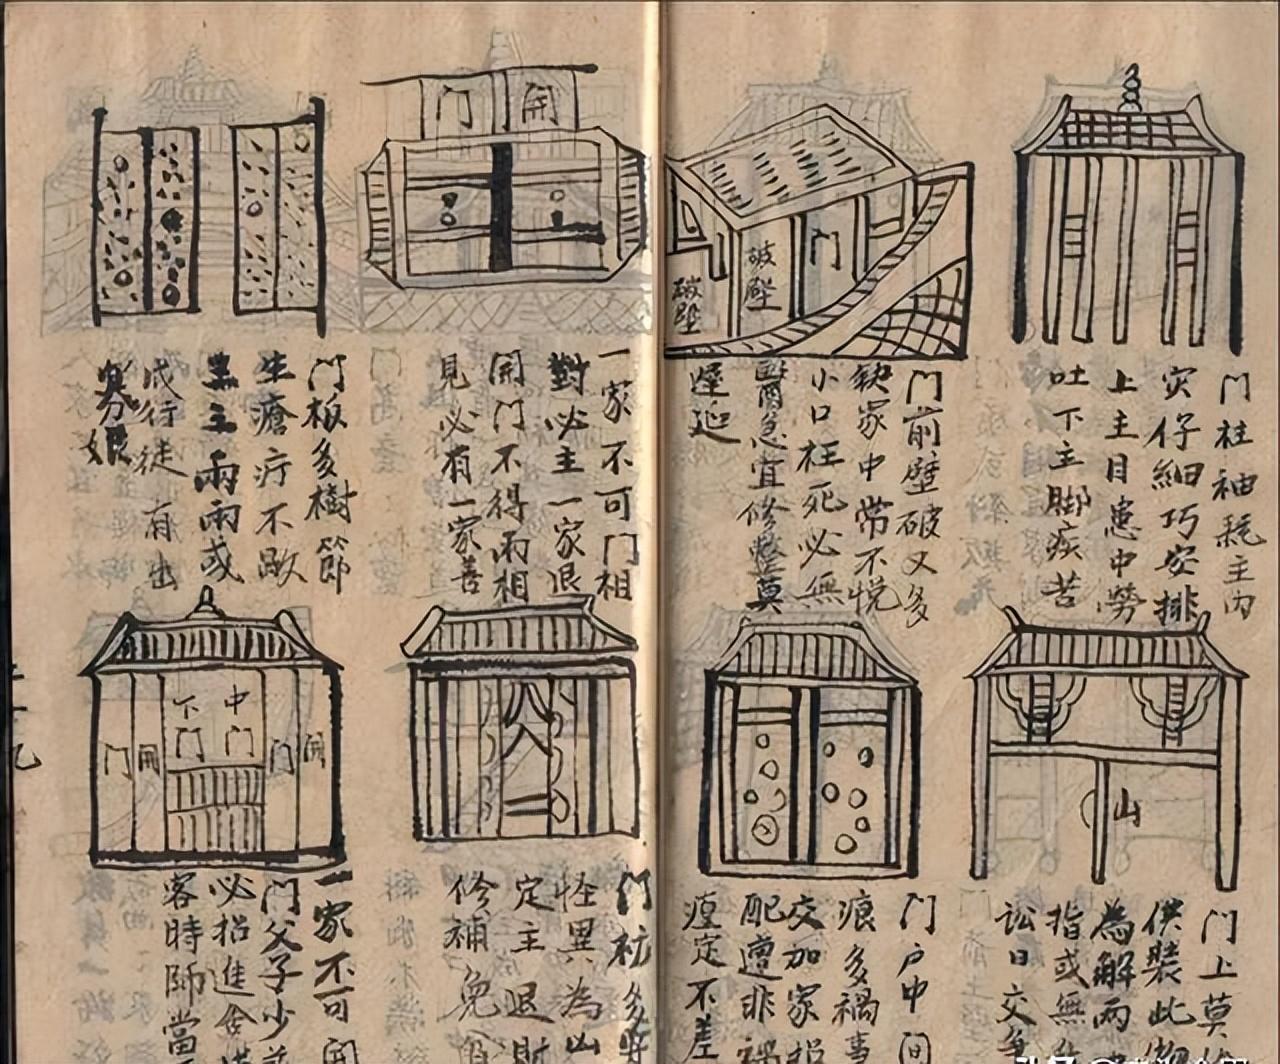 门柱袖耗主内
灾仔細巧安排
上主目患中勞
吐下主脚疾苦
破壁
门
破壁
门前壁破又多
缺家中常不悦
小口枉死必無
醫急宜修整莫
遲延
開
门
一家不可门相
對必主一家退
開门不得兩相
見必有一家善
门板多樹節
生瘡疔不歐
主兩兩或
成行徒有出
寡娘
山
门上莫
供裝此
為解兩
指或無
訟日交争
门户中间
痕多禍事
交加家招
配遭非禍
瘟定不差
门多
怪異為山
定主退財
修補免
開
门
中门
下门
開
门
一家不可開
门父子少
必招進舍
客時師當